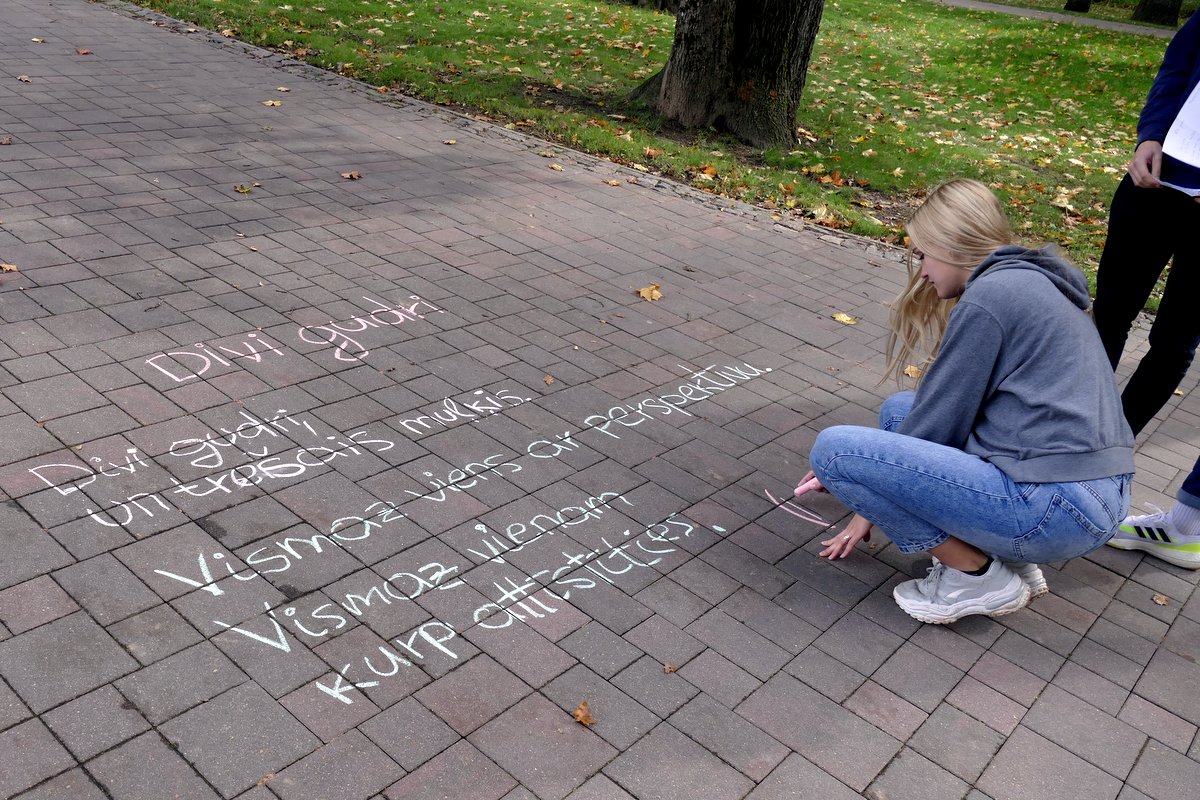 Divi gudri
Divi gudri,
un trešais muļķis.
Vismaz viens ar perspektīvu.
Vismaz vienam
kurp attīstīties.